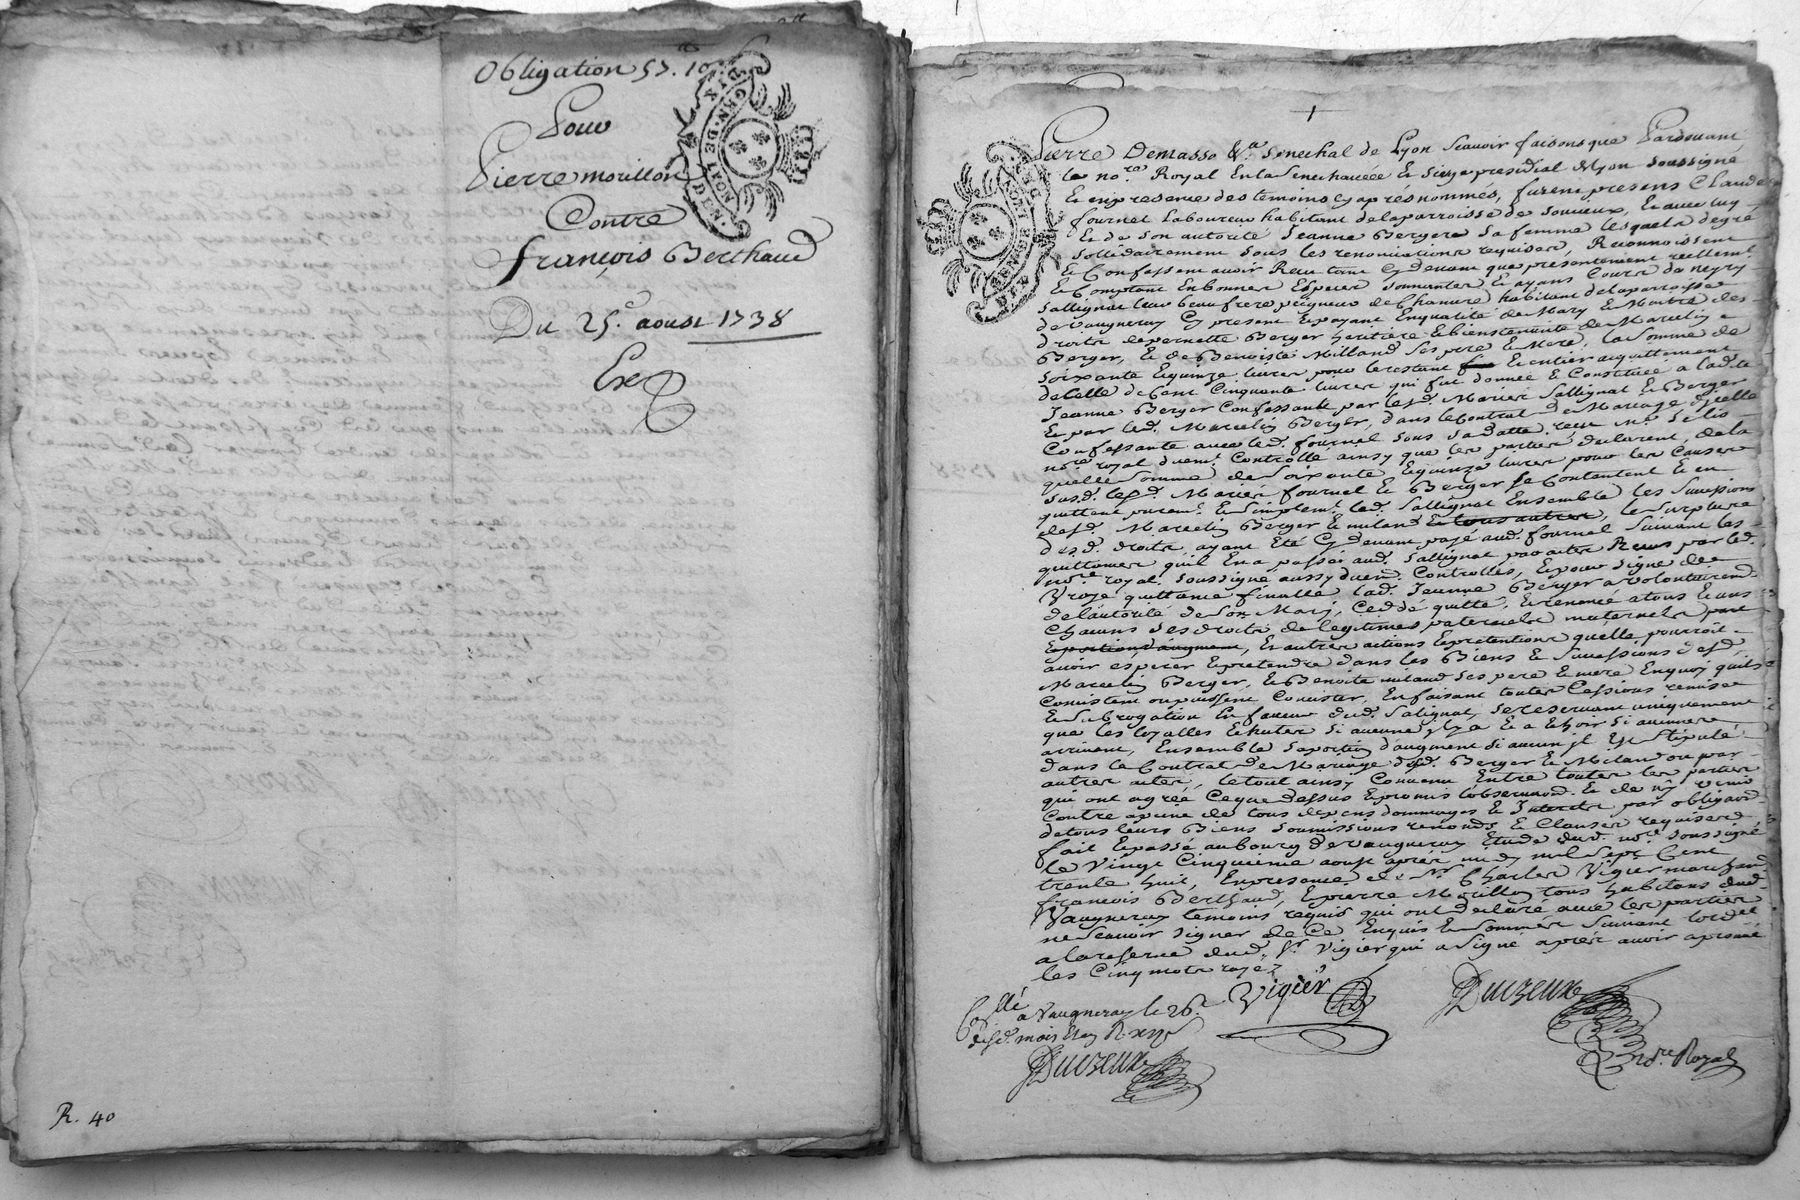 Obligation 57. 10
Pour
Pierre morillon
Contre
françois Berthaud
Du 25e. aoust 1738
Exp
GEN. DE LYON
R. 40
Pierre Demasso Sr. senechal de Lyon scavoir faisons que Pardevant
le nore. Royal En la senechaucée & siege presidial de Lyon soussigné
Et en presence des temoins cy aprés nommés, furent presens Claude
fournel Laboureur habitant de la parroisse de soucieux, Et avec luy
Et de son autorité Jeanne Berger sa femme lesquels de gré
sollidairement sous les renonciations requises, Reconnoissent
Et Confessent avoir Receu tant cy devant que presentement reellemt.
Et Comptant En bonnes Especes sonnantes & ayans Cours de
Sallignat leur beau frere peigneur de Chanvre habitant de la parroisse
de vaugneray Cy present & payant En qualité de Mary & Maitre des
droits de pernette Berger heritiere & bientenante de Marcelin
Berger, Et de Benoiste Milland ses pere & Mere, la somme de
soixante Et quinze livres pour le restant & entier acquittement
de Celle de Cent Cinquante livres qui fut donnée & Constituée a lad.
Jeanne Berger Confessante par lesd. Mariés Sallignat & Berger
& par led. Marcelin Berger, dans le Contrat de Mariage d'Icelle
Confessante avec led. fournel sous sa datte receu Me.
nore. royal duemt. Controllé ainsy que les parties declarent, de la
quelle somme de soixante Et quinze livres pour les Causes
susd. lesd. Mariés fournel & Berger se Contentent & en
quittent puremt. & simplemt. led. Sallignat Ensemble les successions
desd. Marcelin Berger & miland & tous autres, le surplus
desd. droits ayant Eté Cy devant payé aud. fournel suivant les
quittances qu'il En a passées aud. Sallignat par actes Receus par led.
nore. royal soussigné aussy duemt. Controllés, & pour signe de
Vraye quittance finalle lad. Jeanne Berger a volontairemt.
de l'autorité de son Mary, Ceddé quitté, & renoncé a tous & uns
Chacuns ses droits de legitimes paternels maternels part
& portion d'augment, Et autres actions & pretentions quelle pourroit
avoir esperer & pretendre dans les Biens & successions desd.
Marcelin Berger, & Benoite miland ses pere & mere En quoy qu'ils
Consistent ou puissent Consister, En faisant toutes Cessions remises
& subrogation En faveur dud. Salignat, se reservant uniquement
que les loyalles Echutes si aucune y a & a Echoir si aucunne
arrivent, Ensemble sa portion d'augment si aucun jl Est stipulé
dans le Contrat de Mariage desd. Berger & Milan ou par
autres actes, le tout ainsy Convenu Entre toutes les parties
qui ont agréé Ce que dessus & promis l'observer. & de n'y venir
Contre a peine de tous depens dommages & Interets par obligaon.
de tous leurs Biens soumissions renonds. & Clauses requises,
fait & passé au bourg de vaugneray Etude dud. nore. soussigné
le Vingt Cinquieme aoust aprés midy mil sept Cent
trente huit, En presence de Sr. Charles Vigier marchand
francois Berthaud, & pierre Morillon tous habitans dud.
Vaugneray temoins requis qui ont declaré avec les parties
ne scavoir signer de Ce Enquis & sommés suivant lordce
a la reserve dud. Sr. Vigier qui a signé aprés avoir aprouvé
les Cinq mots rayez
Vigier
Duizeux
nore. Royal
Collé
a Vaugneray le 26e.
desd. mois & an R.
Duizeux